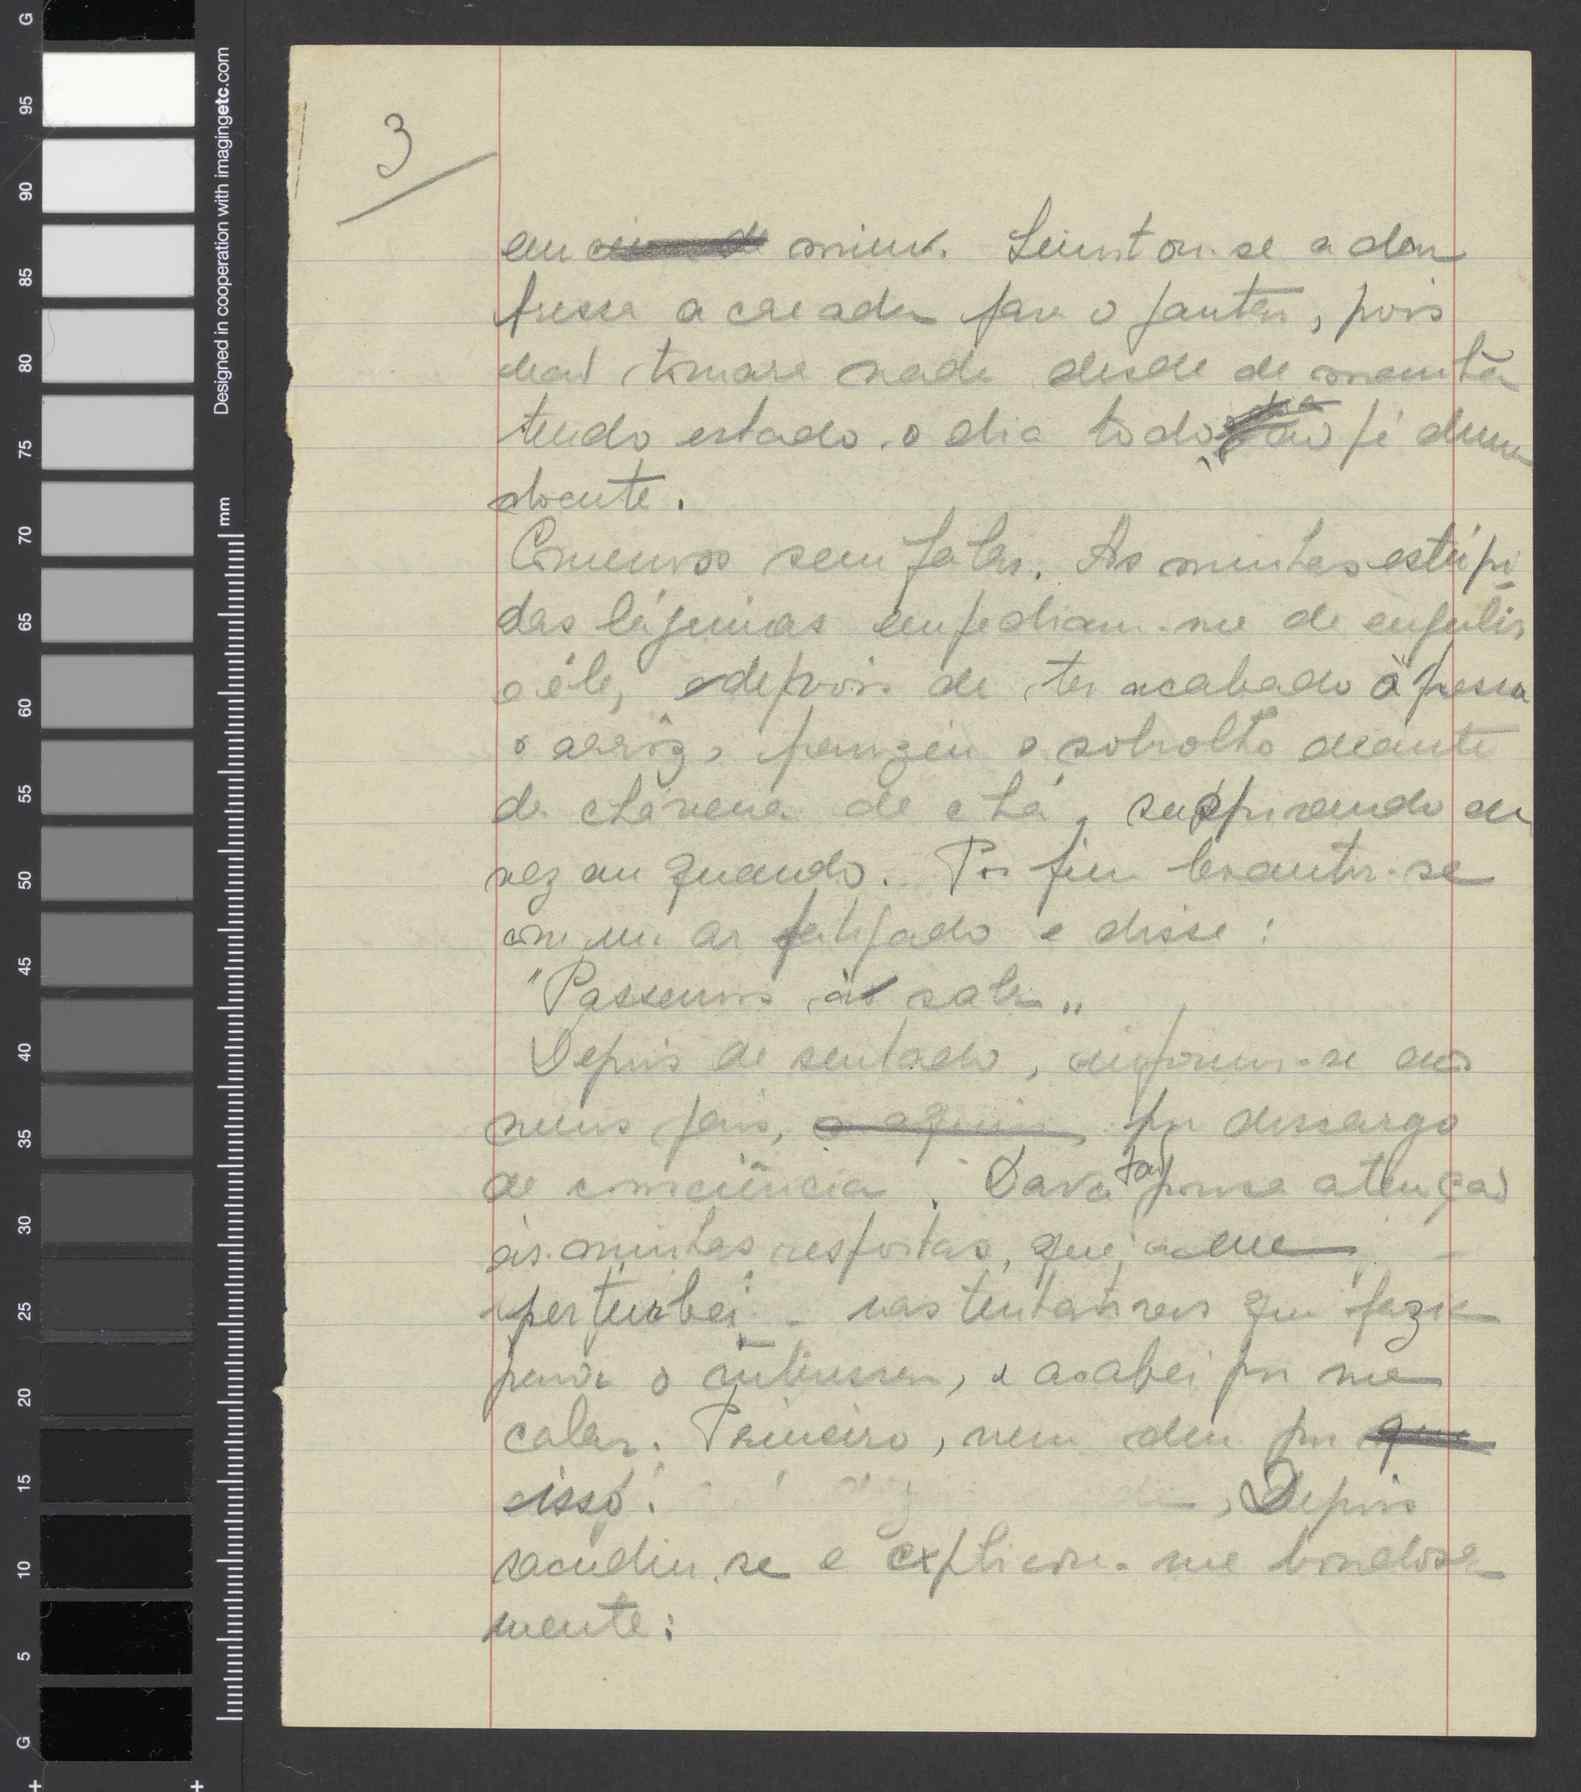 3
em mim. Limitou-se a dar
pressa à creada para o jantar, pois
não tomara nada desde de manhã
tendo estado o dia todo ao pé duma
doente.
Comemos sem falar. As minhas estúpi
das lágrimas empediam-me de engulir
e êle, depois de ter acabado à pressa
o arrôz, franziu o sobrolho deante
da chávena de chá, suspirando de
vez em quando. Por fim levantou-se
com um ar fatigado e disse:
"Passemos à sala"
Depois de sentado, informou-se dos
meus pais, por descargo
de consciência. Dava tão pouca atenção
às minhas respostas, que me
perturbei nas tentativas que fazia
para o interessar, e acabei por me
calar. Primeiro, nem deu por
isso. Depois
sacudiu-se e explicou-me bondosa
mente:
Designed in cooperation with imagingetc.com
mm
G
95
90
85
80
75
70
65
60
55
50
45
40
35
30
25
20
15
10
5
G